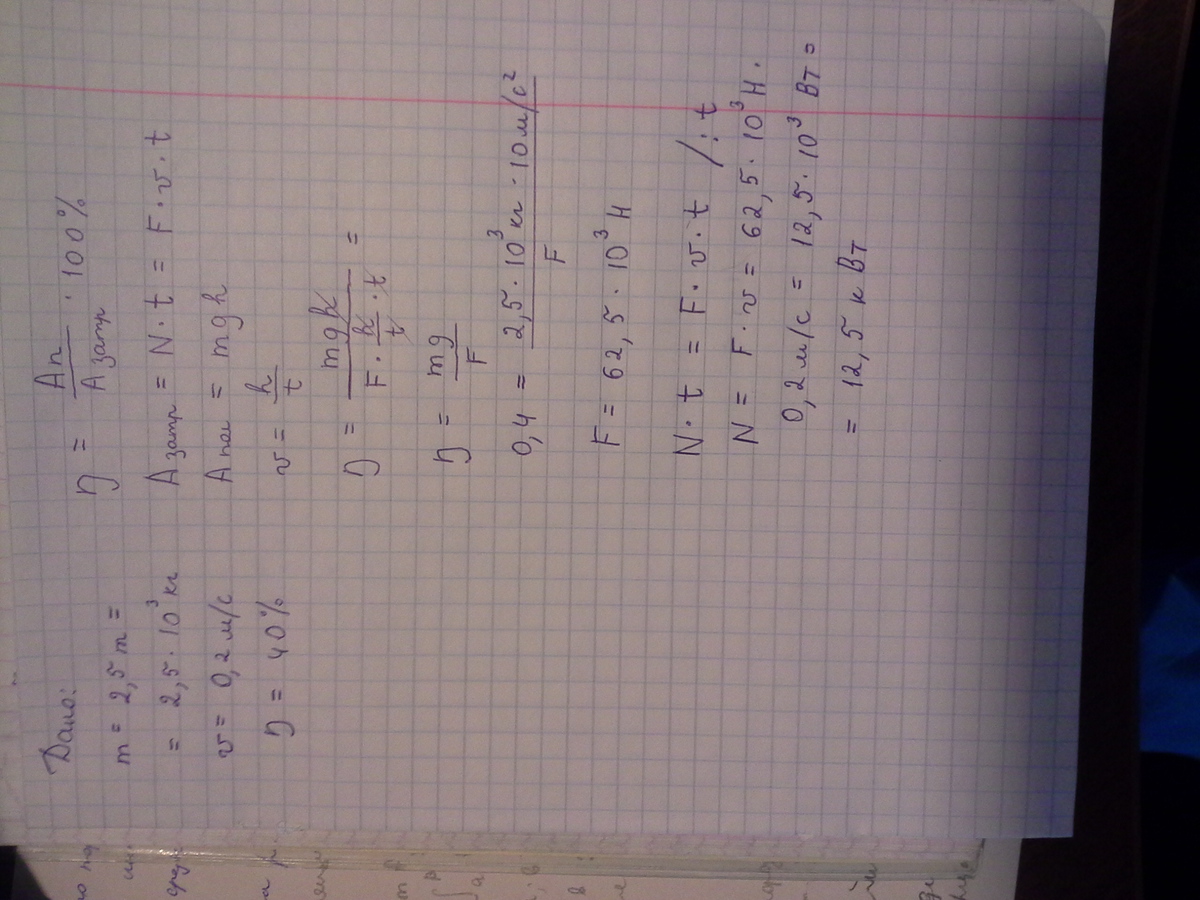 Дано:
m = 2,5 т =
= 2,5 · 10³ кг
v = 0,2 м/с
η = 40%
η = Aп / Aзатр · 100%
Aзатр = N · t = F · v · t
Aпол = mgh
v = h / t
η = mgh / F · h/t · t =
η = mg / F
0,4 = 2,5 · 10³ кг · 10 м/с² / F
F = 62,5 · 10³ Н
N · t = F · v · t /: t
N = F · v = 62,5 · 10³ Н ·
0,2 м/с = 12,5 · 10³ Вт =
= 12,5 кВт